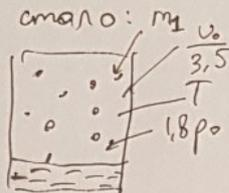 стало: m₁
V₀
3,5
T
1,8p₀